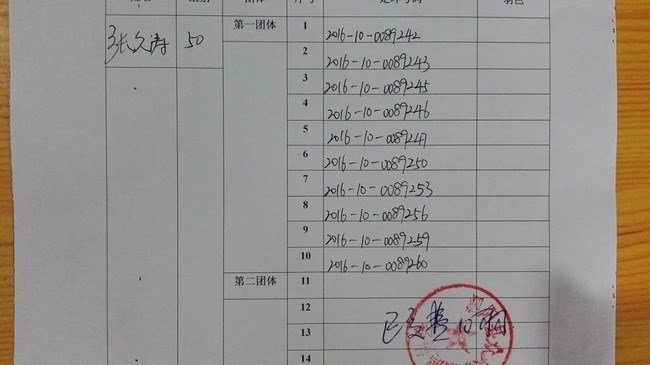 张久涛 50 第一团体 1 2016-10-0089242
2 2016-10-0089243
3 2016-10-0089245
4 2016-10-0089246
5 2016-10-0089249
6 2016-10-0089250
7 2016-10-0089253
8 2016-10-0089256
9 2016-10-0089259
10 2016-10-0089260
第二团体 11
12
已交
13
14